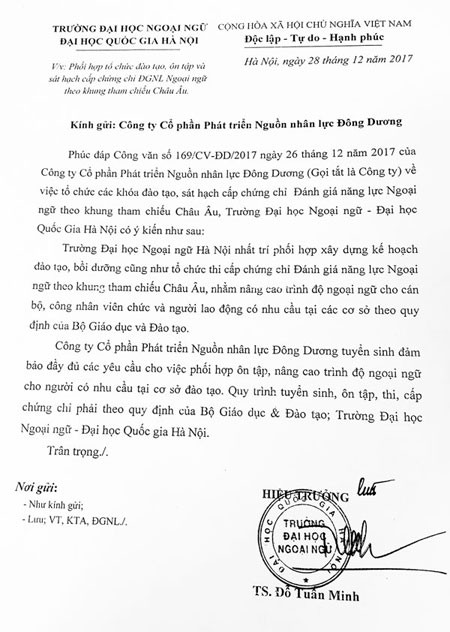 TRƯỜNG ĐẠI HỌC NGOẠI NGỮ
ĐẠI HỌC QUỐC GIA HÀ NỘI
CỘNG HÒA XÃ HỘI CHỦ NGHĨA VIỆT NAM
Độc lập - Tự do - Hạnh phúc
V/v: Phối hợp tổ chức đào tạo, ôn tập và
sát hạch cấp chứng chỉ ĐGNL Ngoại ngữ
theo khung tham chiếu Châu Âu.
Hà Nội, ngày 28 tháng 12 năm 2017
Kính gửi: Công ty Cổ phần Phát triển Nguồn nhân lực Đông Dương
Phúc đáp Công văn số 169/CV-ĐD/2017 ngày 26 tháng 12 năm 2017 của
Công ty Cổ phần Phát triển Nguồn nhân lực Đông Dương (Gọi tắt là Công ty) về
việc tổ chức các khóa đào tạo, sát hạch cấp chứng chỉ Đánh giá năng lực Ngoại
ngữ theo khung tham chiếu Châu Âu, Trường Đại học Ngoại ngữ - Đại học
Quốc Gia Hà Nội có ý kiến như sau:
Trường Đại học Ngoại ngữ Hà Nội nhất trí phối hợp xây dựng kế hoạch
đào tạo, bồi dưỡng cũng như tổ chức thi cấp chứng chỉ Đánh giá năng lực Ngoại
ngữ theo khung tham chiếu Châu Âu, nhằm nâng cao trình độ ngoại ngữ cho cán
bộ, công nhân viên chức và người lao động có nhu cầu tại các cơ sở theo quy
định của Bộ Giáo dục và Đào tạo.
Công ty Cổ phần Phát triển Nguồn nhân lực Đông Dương tuyển sinh đảm
bảo đầy đủ các yêu cầu cho việc phối hợp ôn tập, nâng cao trình độ ngoại ngữ
cho người có nhu cầu tại cơ sở đào tạo. Quy trình tuyển sinh, ôn tập, thi, cấp
chứng chỉ phải theo quy định của Bộ Giáo dục & Đào tạo; Trường Đại học
Ngoại ngữ - Đại học Quốc gia Hà Nội.
Trân trọng./.
Nơi gửi:
- Như kính gửi;
- Lưu; VT, KTA, ĐGNL./.
HIỆU TRƯỞNG
ĐẠI HỌC QUỐC GIA HÀ NỘI
TRƯỜNG
ĐẠI HỌC
NGOẠI NGỮ
TS. Đỗ Tuấn Minh